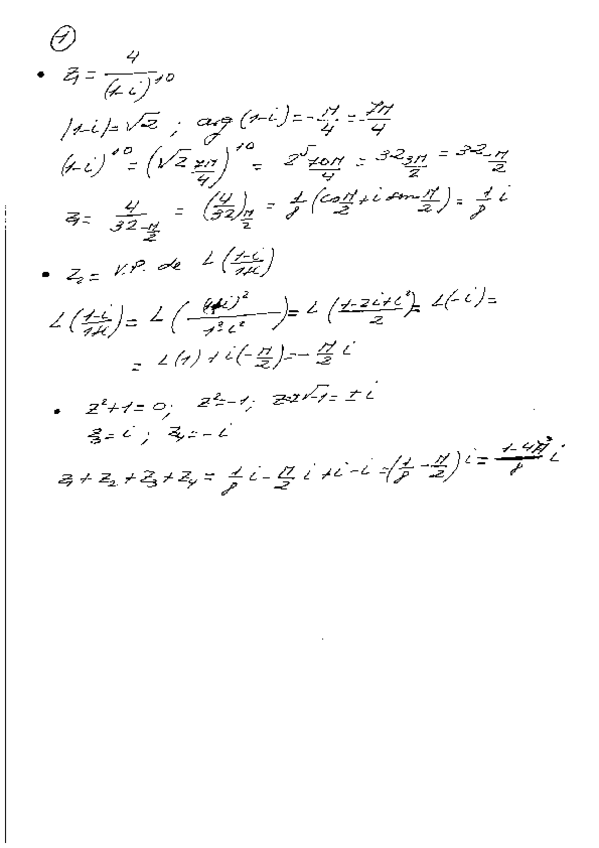 ①
• z₁ = 4/(1-i)^10
|1-i| = √2 ; arg (1-i) = -π/4 = 7π/4
(1-i)^10 = (√2 _{7π/4})^10 = 2^5 _{70π/4} = 32 _{3π/2} = 32 _{-π/2}
z₁ = 4/32_{-π/2} = (4/32)_{π/2} = 1/8 (cos π/2 + i sen π/2) = 1/8 i
• z₂ = V.P. de L(1-i/1+i)
L(1-i/1+i) = L((1-i)²/1²-i²) = L(1-2i+i²/2) = L(-i) =
= L(1) + i(-π/2) = -π/2 i
• z²+1=0; z²=-1; z=±√-1 = ±i
z₃ = i ; z₄ = -i
z₁ + z₂ + z₃ + z₄ = 1/8 i - π/2 i + i - i = (1/8 - π/2) i = 1-4π/8 i